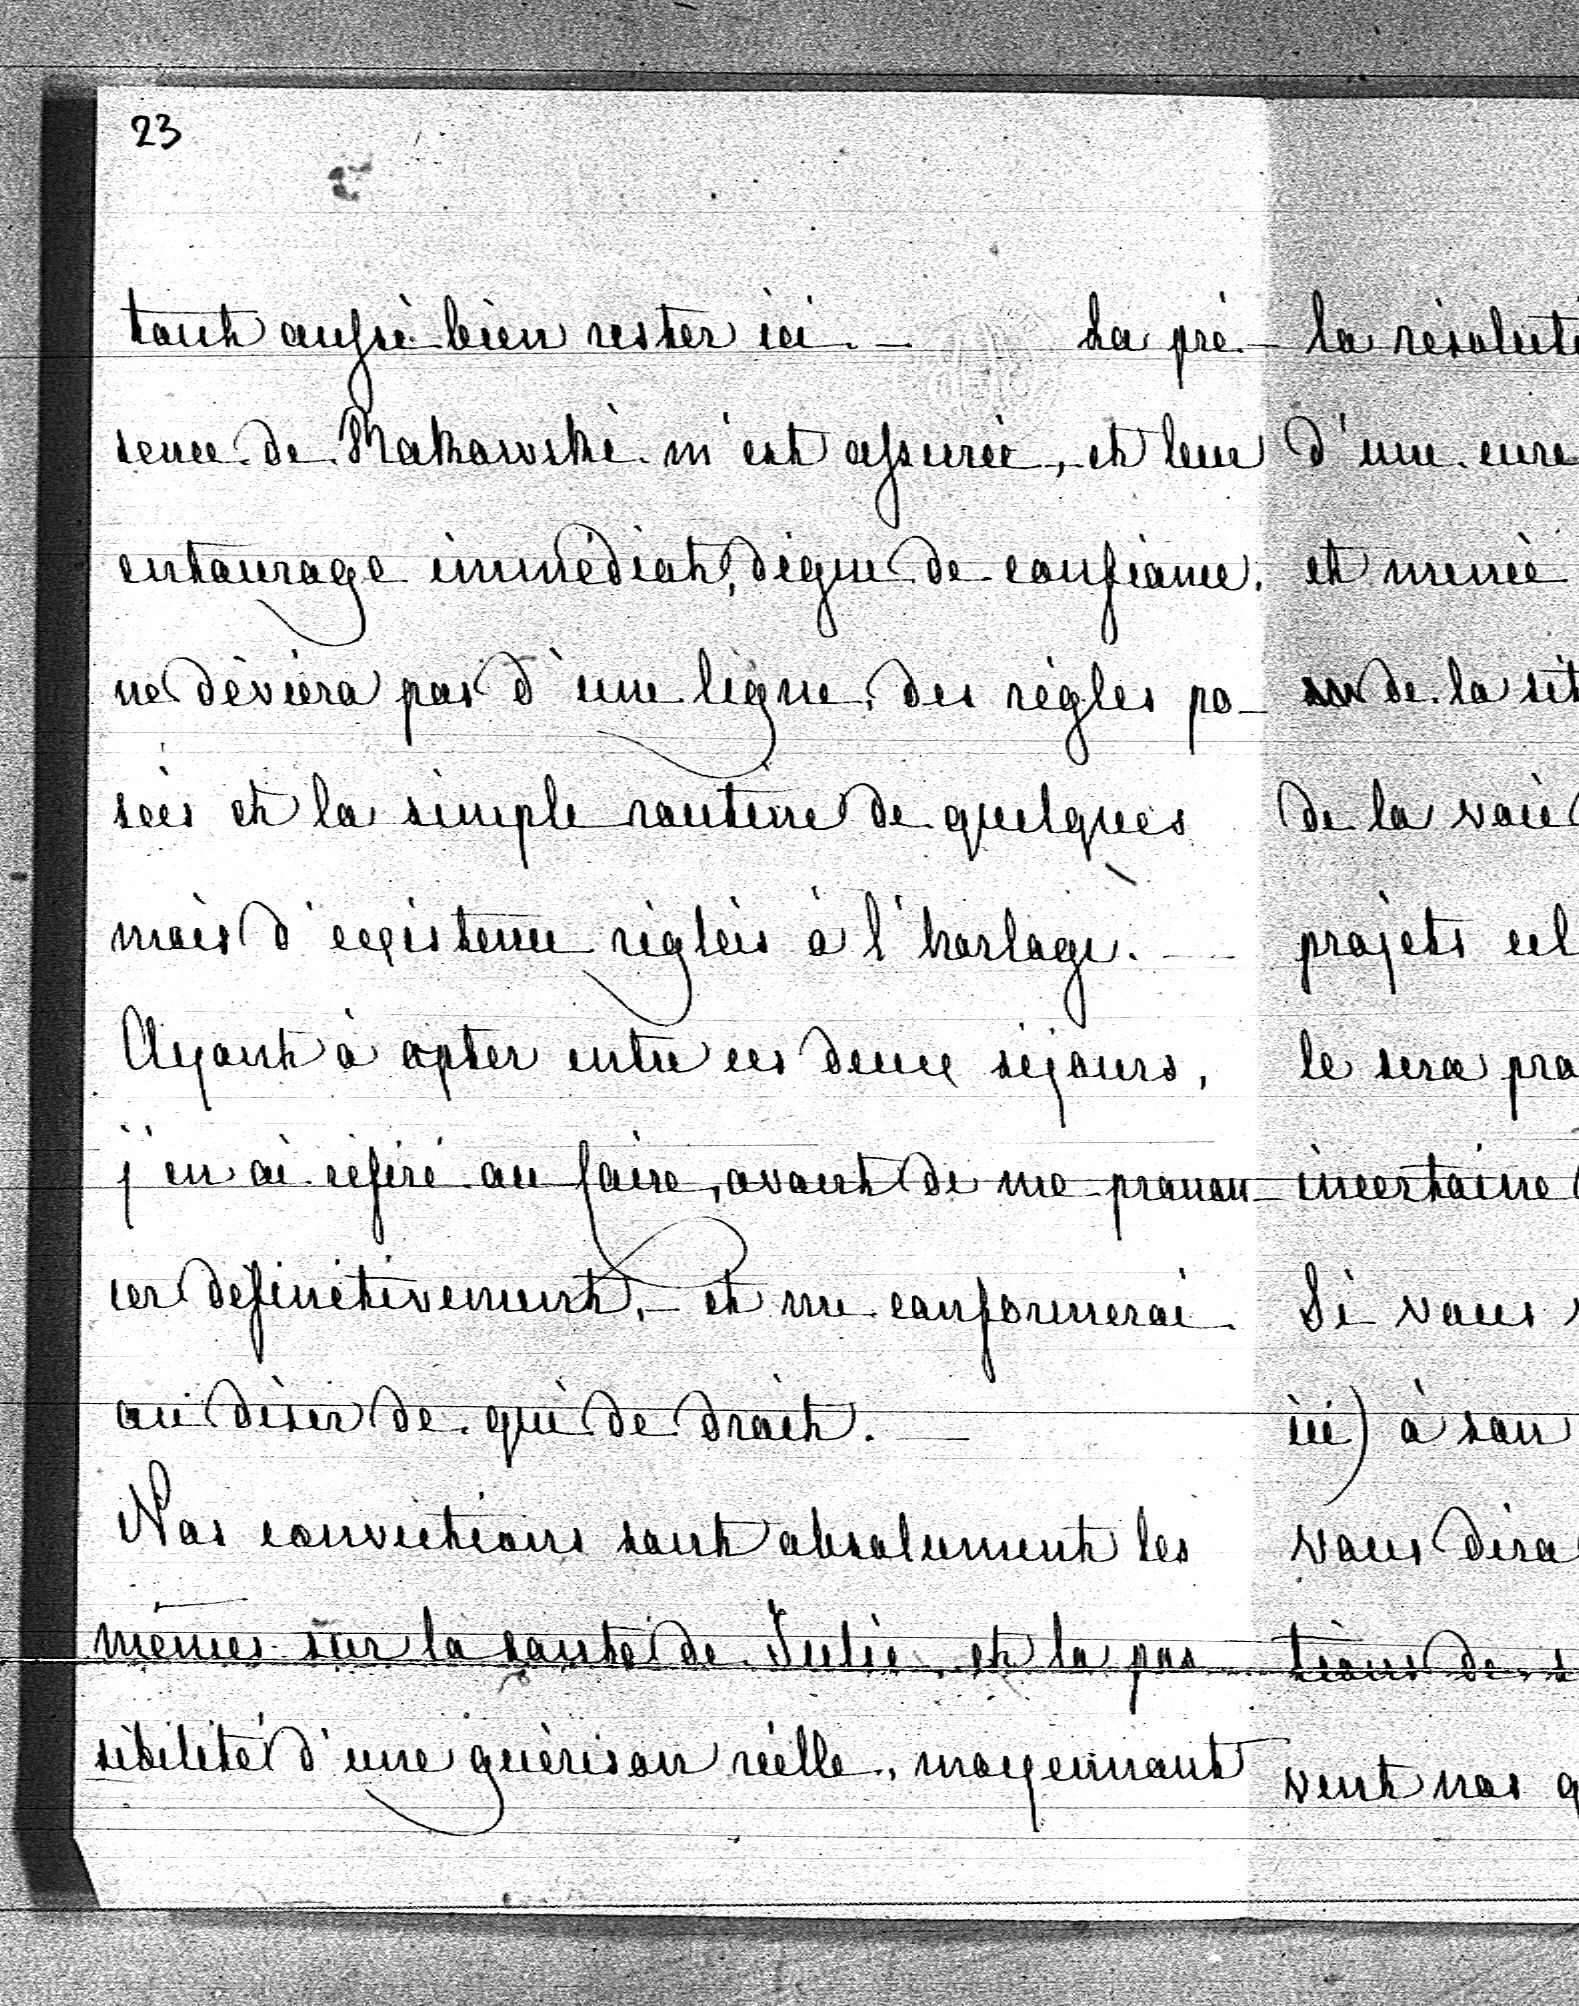 23
tout aussi bien rester ici. — La pré-
sence de Makowski m'est assurée, et leur
entourage immédiat, digne de confiance,
ne déviera pas d'une ligne, des règles po-
sées et la simple routine de quelques
mois d'existence réglés à l'horloge. —
Ayant à opter entre ces deux séjours,
j'en ai référé au faire, avant de me pronon-
cer définitivement, — et me conformerai
au désir de qui de droit. —
Nos convictions sont absolument les
mêmes sur la santé de Julie, et la pos
sibilité d'une guérison réelle, moyennant
la résoluti
d'une cure
et menée
de la sit
de la voie
projets cel
le sera pro
incertaine
Si vous
ici) à son
vous dira
tions de s
vent nos q